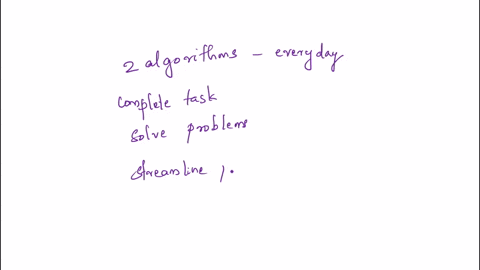 2 algorithms - everyday
complete task
solve problems
streamline